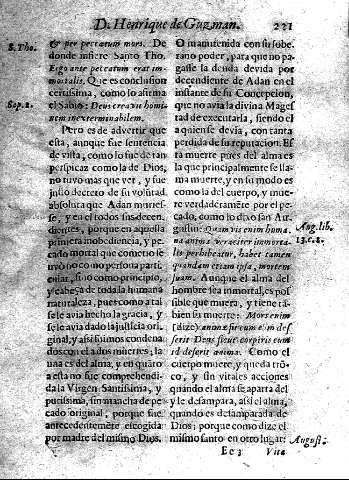 D. Henrique de Guzman. 221
S. Tho.
& per peccatum mors. De
donde infiere Santo Tho.
Ergo ante peccatum erat im-
mortalis. Que es conclusion
certissima, como lo afirma
Sap. 2.
el Sabio: Deus creavit homi-
nem inexterminabilem.
Pero es de advertir que
esta, aunque fue sentencia
de vista, como lo fue de tan
perspicaz como la de Dios,
no tuvo mas que ver, y fue
justo decreto de su volūtad
absoluta que Adan murief-
se, y en el todos sus decen-
dientes, porque en aquella
primera inobediencia, y pe-
cado mortal que cometio se
uvo no como persona parti
cular, sino como principio,
y cabeça de toda la humana
naturaleza, pues como a tal
se le avia hecho la gracia, y
se le avia dado la justicia ori
ginal, y assi fuimos condena
dos con el a dos muertes; la
una es del alma, y en quāto
a esta no fue comprehendi-
da la Virgen Santissima, y
purissima, sin mancha de pe-
cado original, porque fue
antecedentemēte escogida
por madre del mismo Dios.
O manutenida con su sobe-
rano poder, para que no pa-
gasse la deuda devida por
decendiente de Adan en el
instante de su Concepcion,
que no avia la divina Mages
tad de executarla, siendo el
a quien se devia, con tanta
perdida de su reputacion. Es
ta muerte pues del alma es
la que principalmente se lla-
ma muerte, y en su modo es
como la del cuerpo, y mue-
re verdaderamēte por el pe-
cado, como lo dixo san Au-
Aug. lib.
13. c. 2.
gustin: Quamvis enim huma
na anima veraciter immorta-
lis perhibeatur, habet tamen
quandam etiam ipsa, mortem
suam. Aunque el alma del
hombre sea inmortal, es pos
sible que muera, y tiene tā-
bien su muerte: Mors enim
(dize) animæ fit cum eam des
serit Deus sicut corporis cum
id deserit anima. Como el
cuerpo muere, y queda trō-
co, y sin vitales acciones
quando el alma se aparta del
y le desampara, assi el alma,
quando es desamparada de
Dios; porque como dize el
mismo santo en otro lugar:
August.
Ee 3 Vita